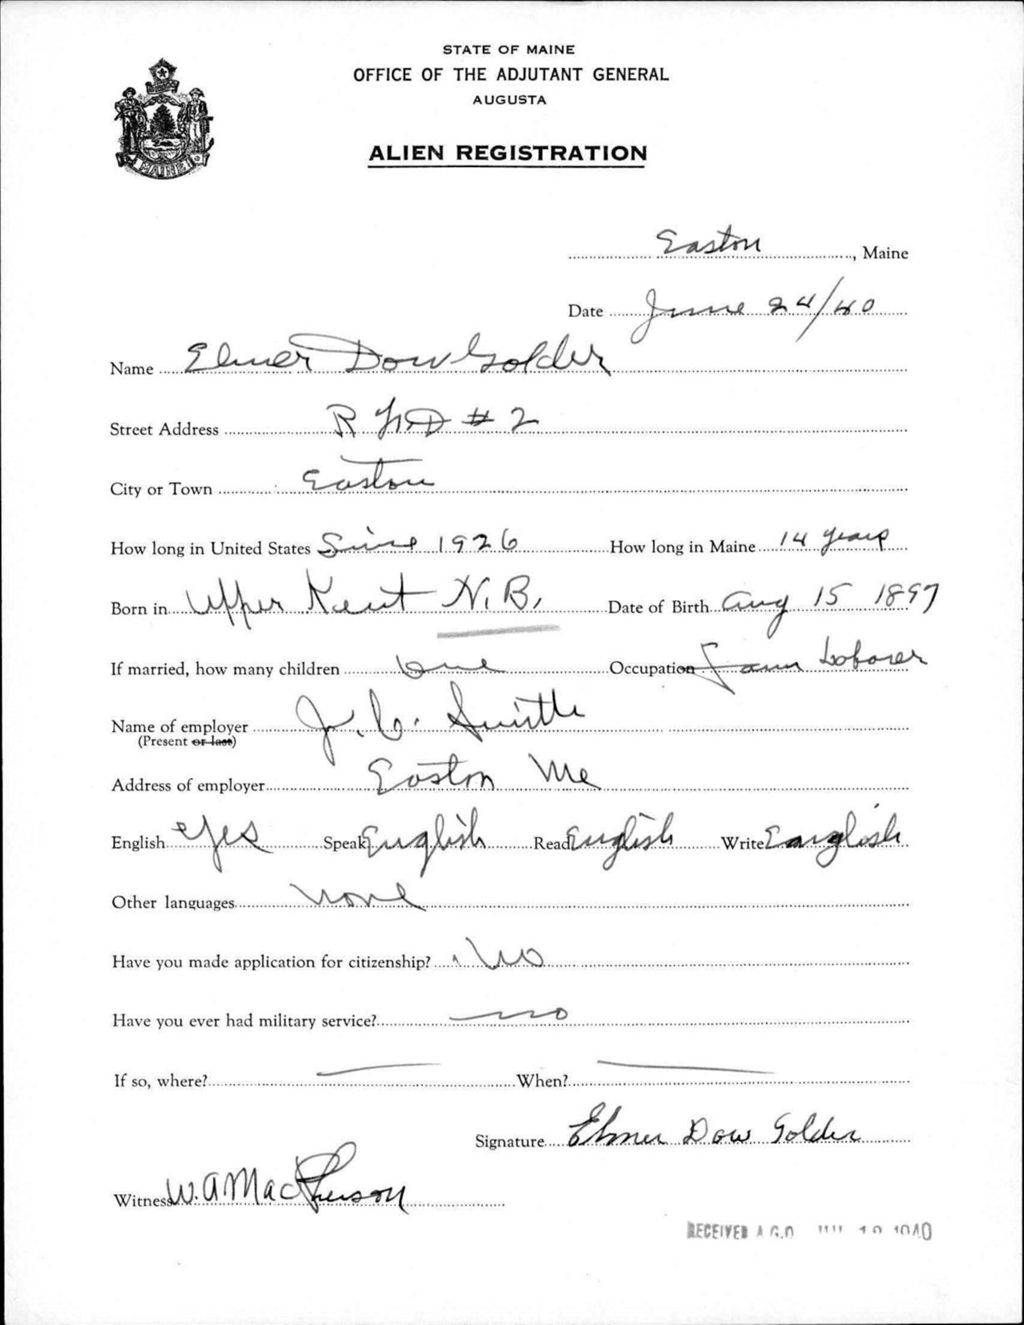 STATE OF MAINE
OFFICE OF THE ADJUTANT GENERAL
AUGUSTA
ALIEN REGISTRATION
MAINE
Easton, Maine
Date June 24/40
Name Elmer Dow Golder
Street Address R F D # 2
City or Town Easton
How long in United States Since 1926 How long in Maine 14 years
Born in Upper Kent N.B. Date of Birth Aug 15 1897
If married, how many children one Occupation Farm Laborer
Name of employer J. C.
(Present or last)
Address of employer Easton Me
English Yes Speak English Read English Write English
Other languages None
Have you made application for citizenship? No
Have you ever had military service? no
If so, where? When?
Signature Elmer Dow Golder
Witness W. A MacPherson
RECEIVED A.G.O. 1940